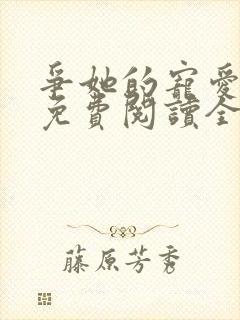 爭她的寵愛
免費閱讀全
藤原芳秀